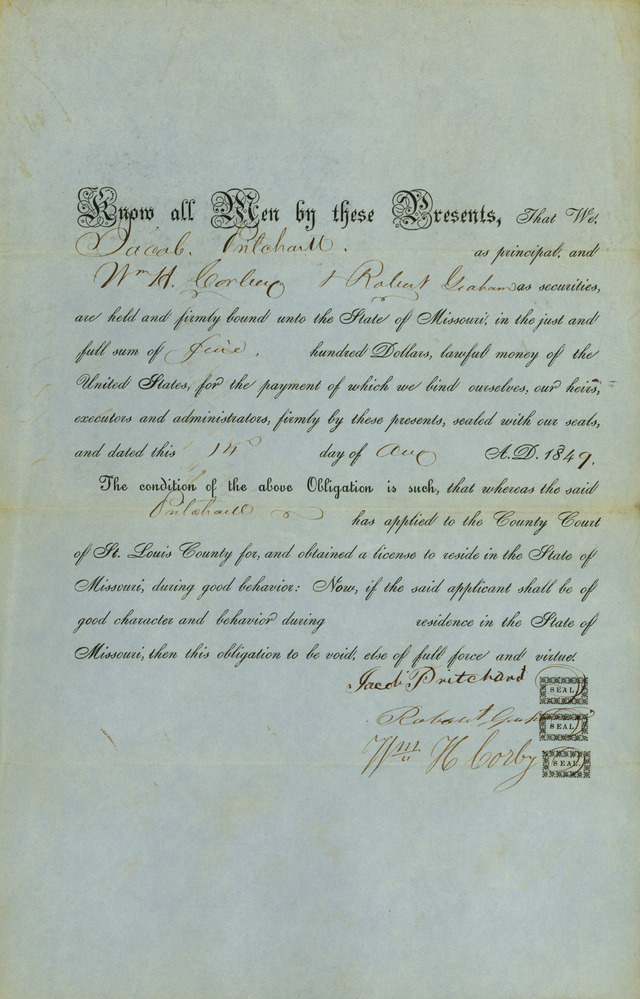 Know all Men by these Presents, That We,
Jacob. Pritchard. as principal, and
Wm H. Corbey & Robert Graham as securities,
are held and firmly bound unto the State of Missouri, in the just and
full sum of five. hundred Dollars, lawful money of the
United States, for the payment of which we bind ourselves, our heirs,
executors and administrators, firmly by these presents, sealed with our seals,
and dated this 14 day of Aug A.D. 1849.
The condition of the above Obligation is such, that whereas the said
Pritchard has applied to the County Court
of St. Louis County for, and obtained a license to reside in the State of
Missouri, during good behavior: Now, if the said applicant shall be of
good character and behavior during residence in the State of
Missouri, then this obligation to be void, else of full force and virtue.
Jacob Pritchard SEAL
Robert SEAL
Wm H Corby SEAL